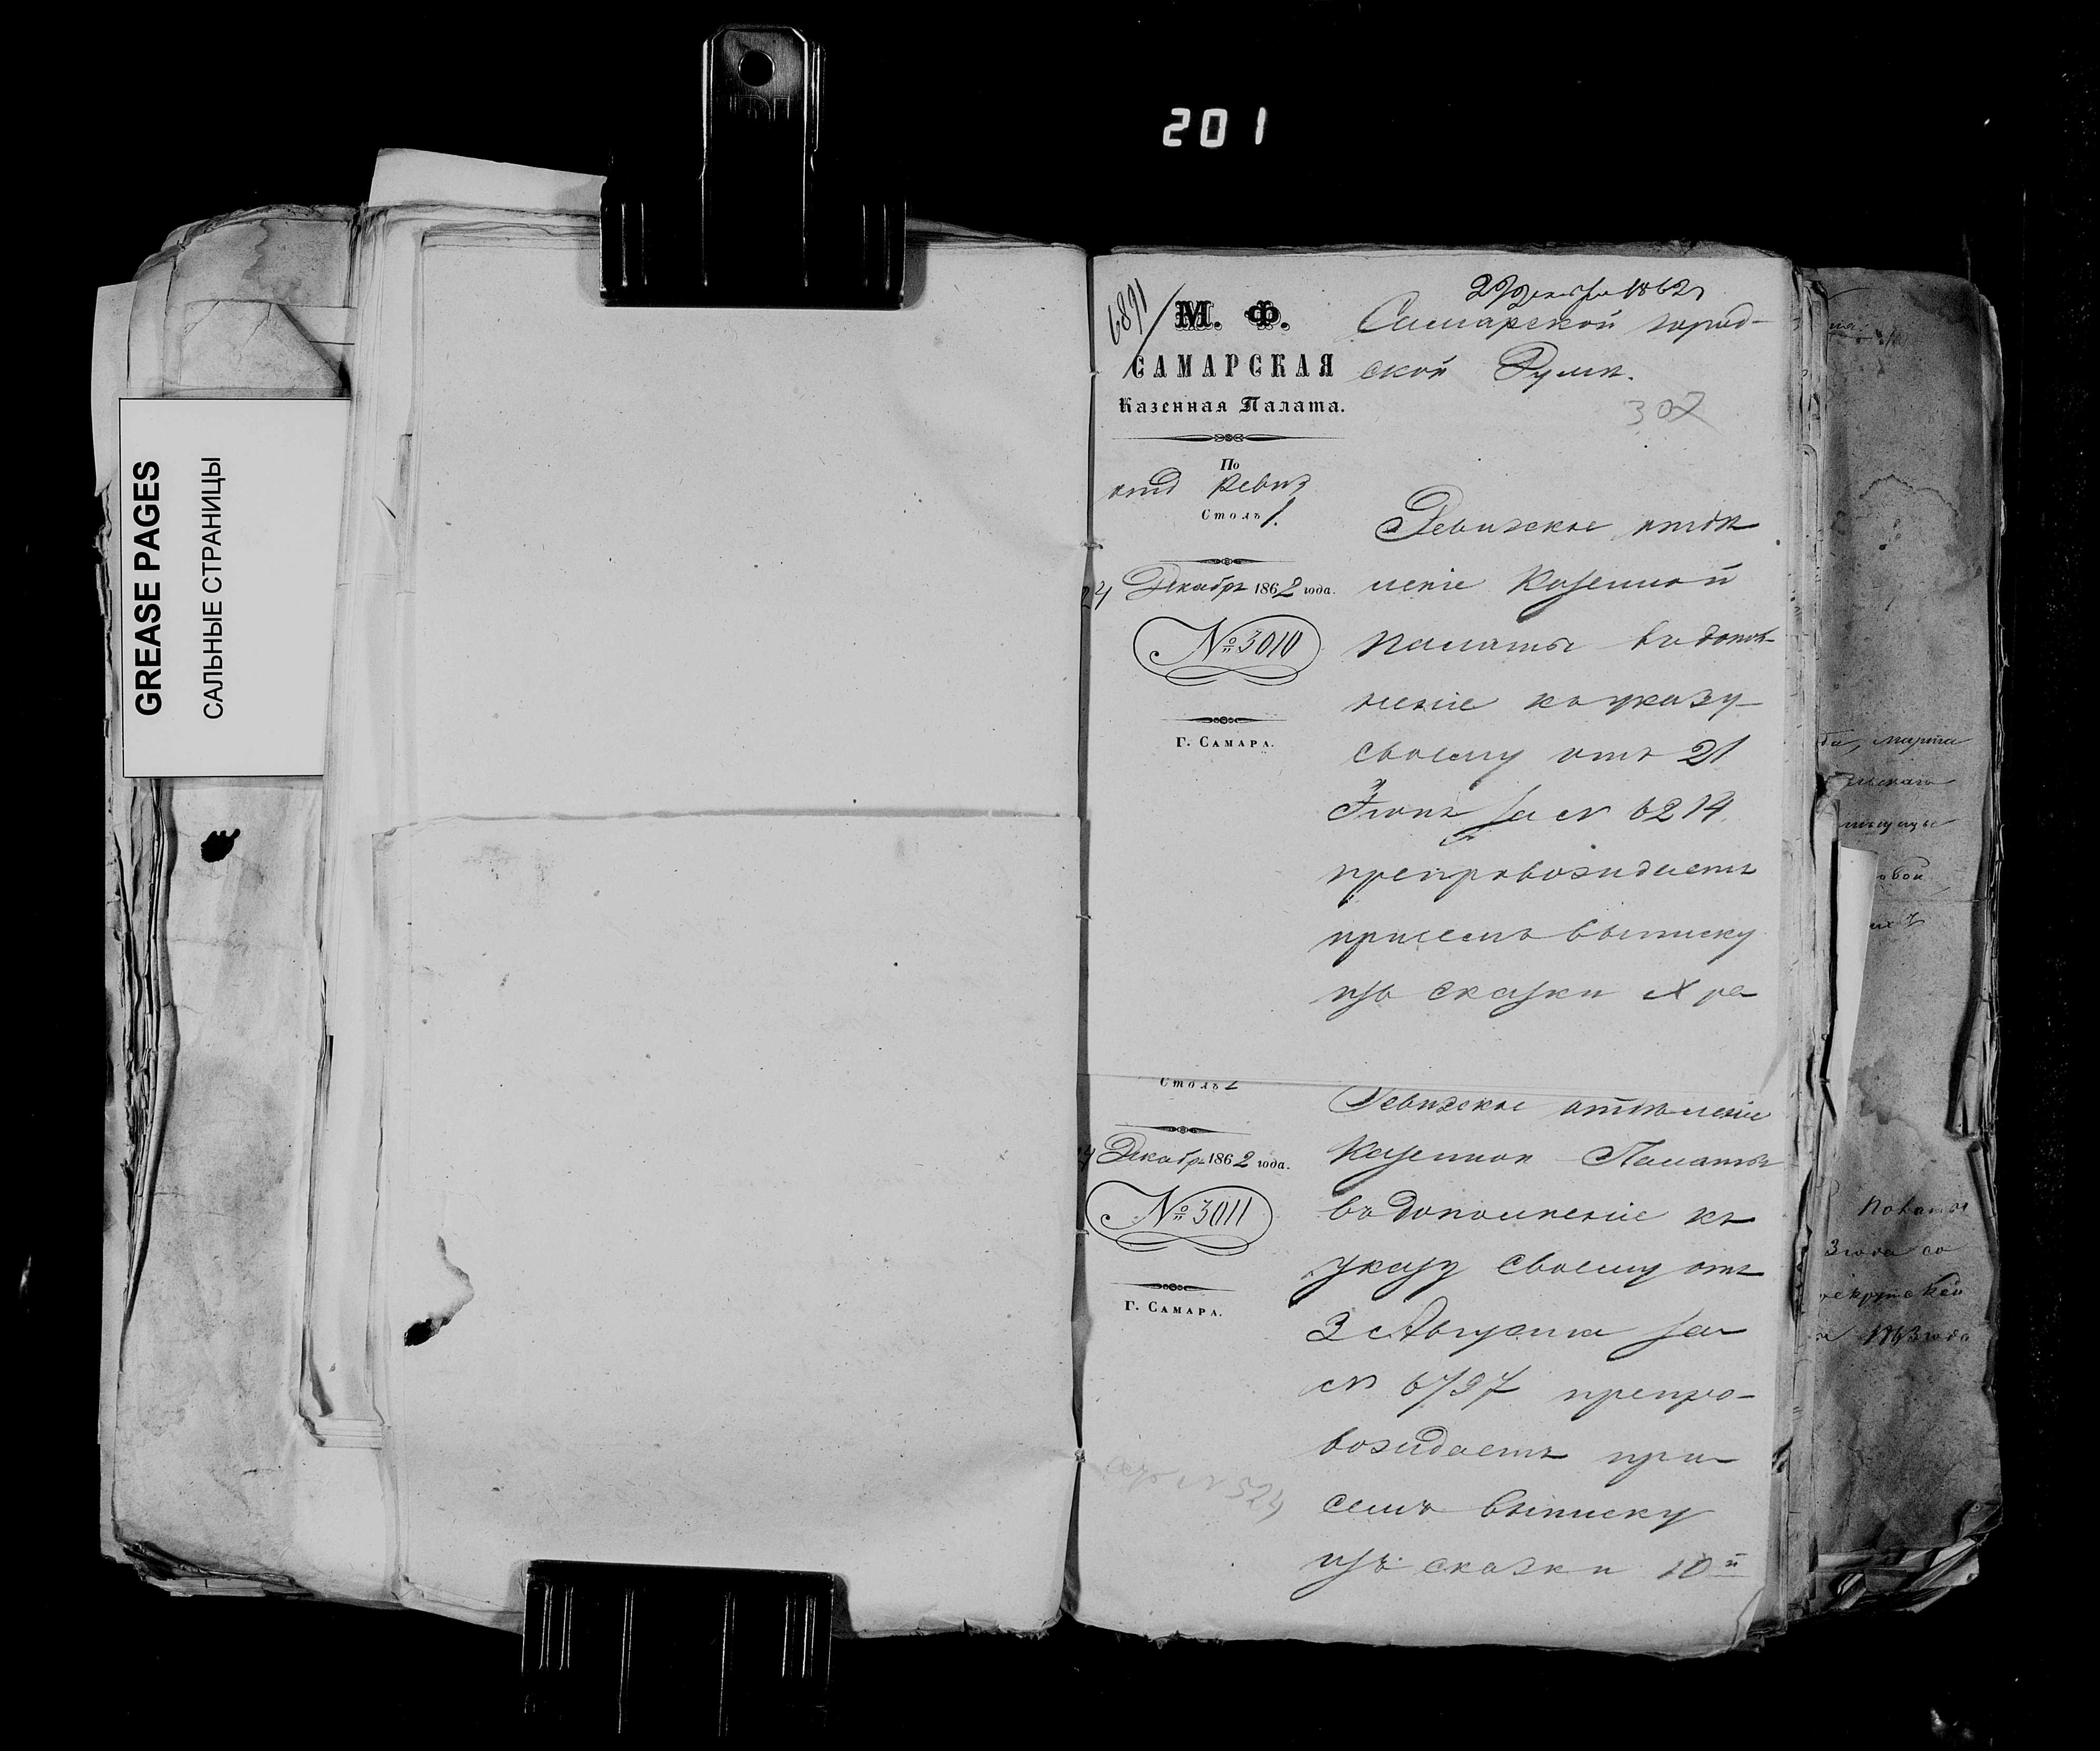 201
GREASE PAGES
САЛЬНЫЕ СТРАНИЦЫ
6891
М. Ф.
САМАРСКАЯ
Казенная Палата.
По
отд Ревиз
Столъ 1.
24 Декабря 1862 года.
№ 3010
Г. САМАРА.
29 Декабря 1862
Самарской город-
ской Думѣ.
307
Ревизское отдѣ
леніе Казенной
Палаты въ допол-
неніе къ указу
своему отъ 21
Іюня за № 6214
препровождаетъ
присемъ выписку
изъ сказки X ре
Столъ 1
Декабря 1862 года.
№ 3011
Г. САМАРА.
Ревизское отдѣленіе
Казенной Палаты
въ дополненіе къ
указу своему отъ
3 Августа за
№ 6797 препро-
вождаетъ при
семъ выписку
изъ сказки 10й
марта
3 года со
рекрутской
1863 года